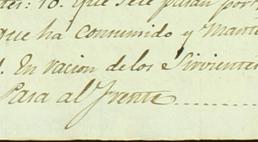 10. que se le pasan por
que ha consumido y Mante
En racion de los Sirviente
Pasa al frente